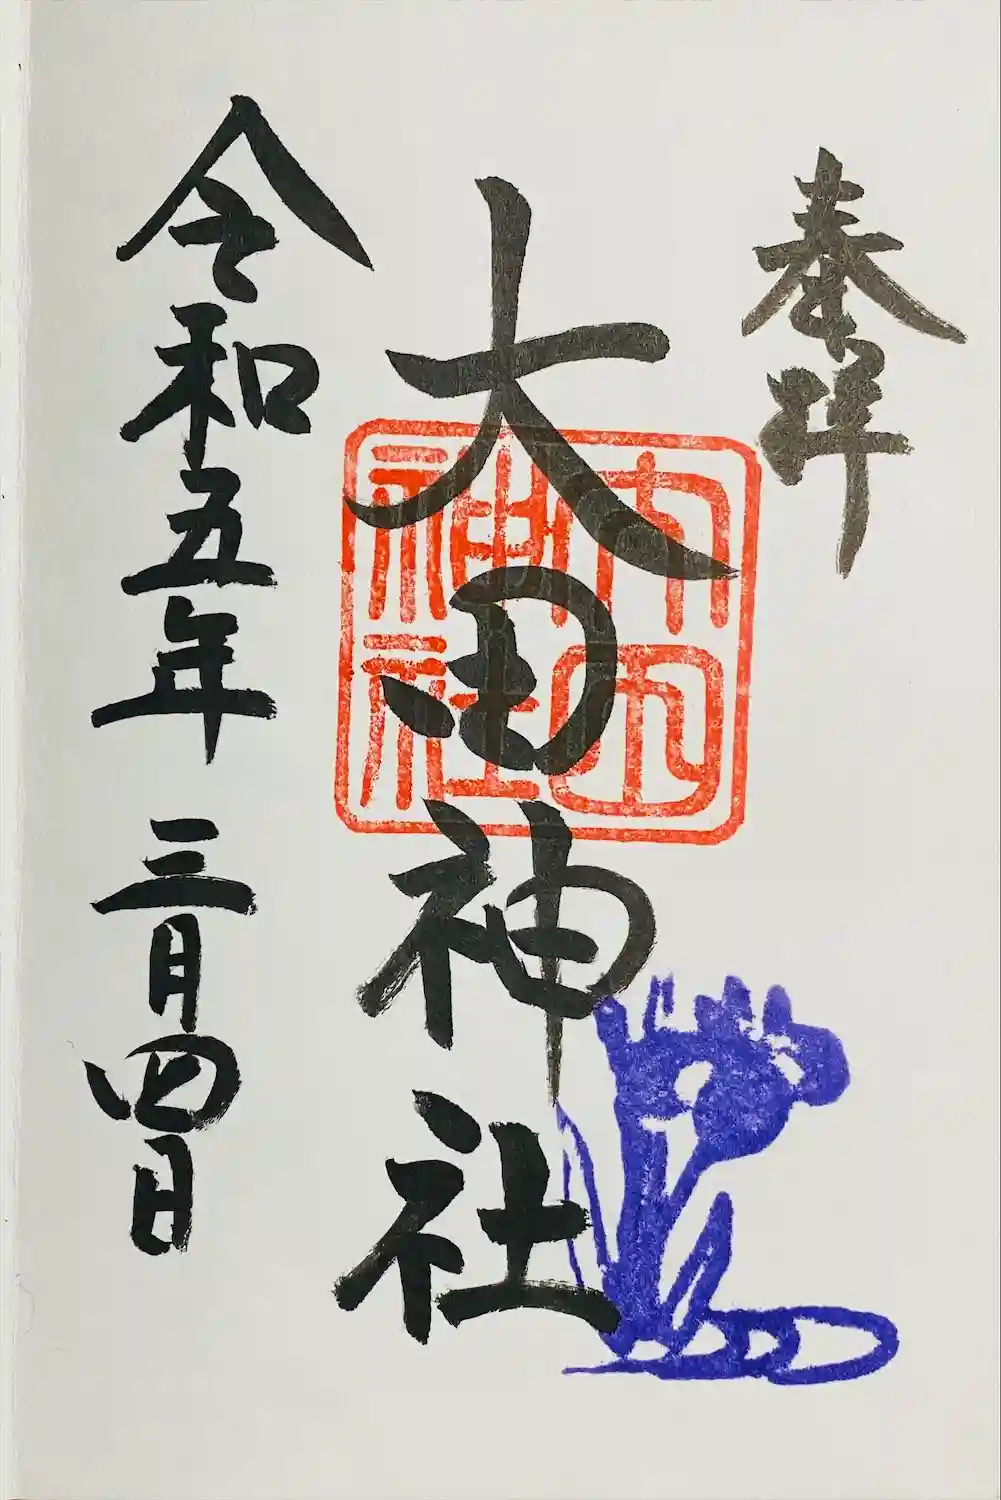 奉拝
大田神社
大田
神社
令和五年三月四日